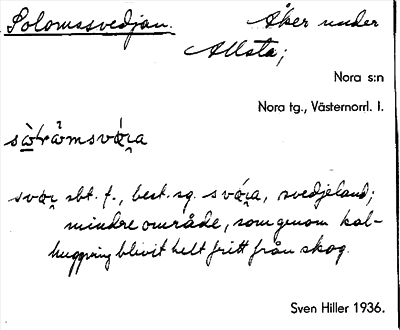 Solomssvedjan. Åker under
Allsta;
Nora s:n
Nora tg., Västernorrl. l.
svǫr sbt. f., best. sg. svǫ́ra, svedjeland;
mindre område, som genom kol-
huggning blivit helt fritt från skog.
Sven Hiller 1936.